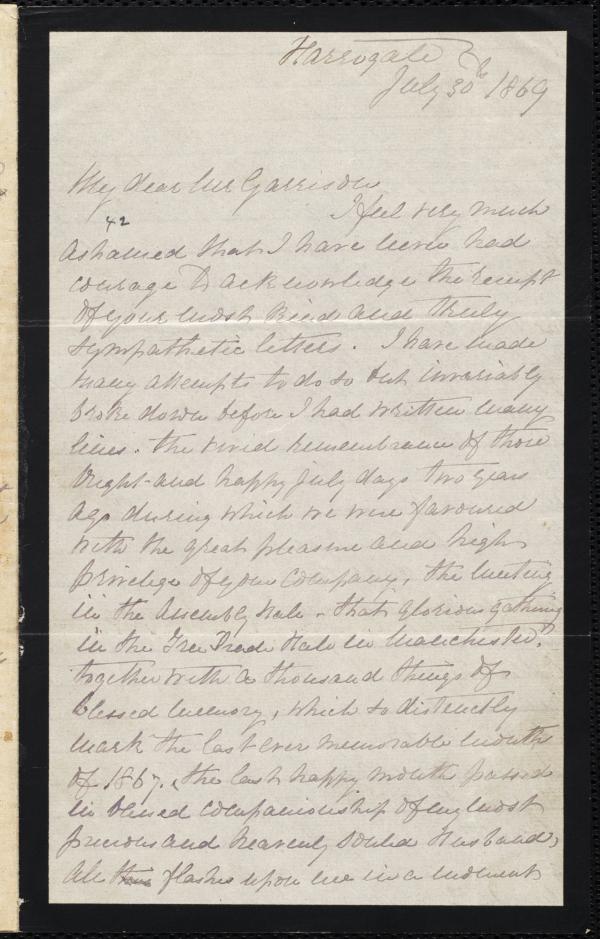 Harrogate
July 30th 1869
My dear Mr Garrison
I feel very much
42
ashamed that I have never had
courage to acknowledge the receipt
of your most kind and truly
sympathetic letters. I have made
many attempts to do so but invariably
broke down before I had written many
lines. the vivid remembrance of those
bright and happy July days two years
ago during which we were favoured
with the great pleasure and high
privilege of your company, the meeting
in the Assembly Hall - that glorious gathering
in the Free Trade Hall in Manchester,
together with a thousand things of
blessed memory, which so distinctly
mark the last ever memorable months
of 1867. the last happy month passed
in blessed companionship of my most
precious and heavenly souled Husband,
all flashes upon me in a moment